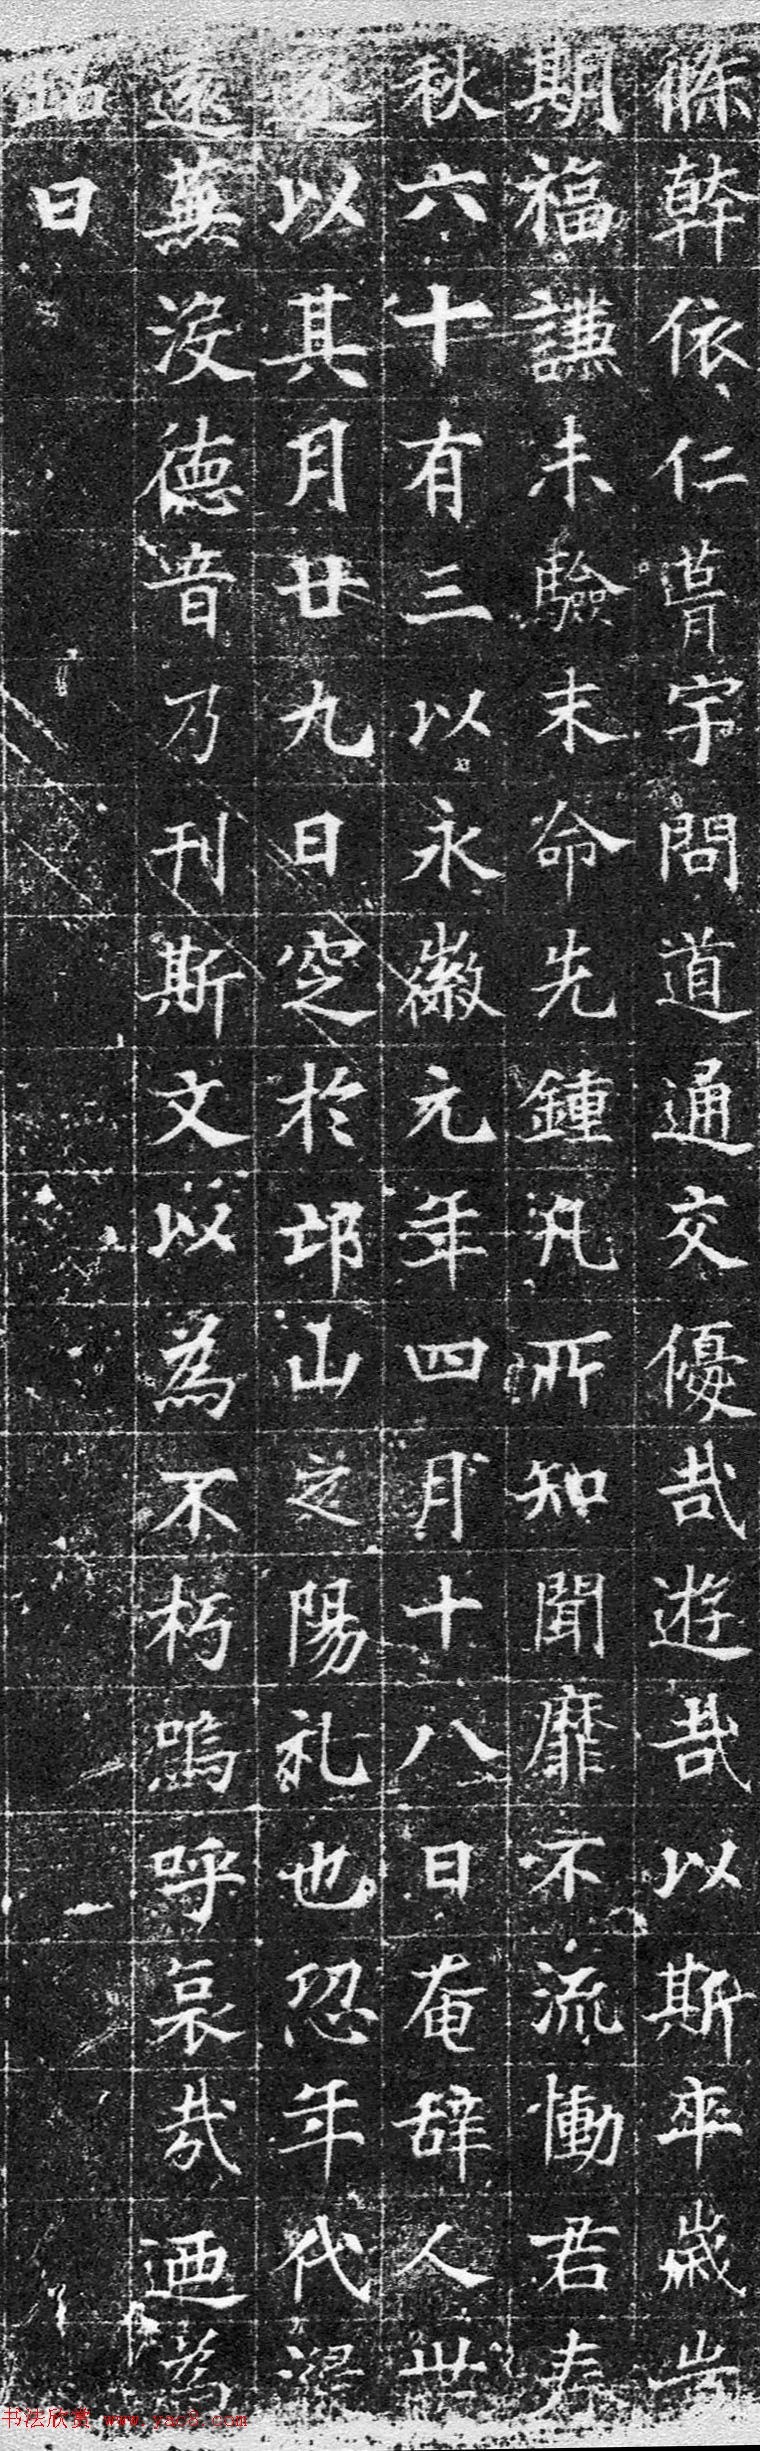 條幹依仁宇問道通交優哉遊哉以斯卒歲豈
期福謙未驗末命先鍾凡所知聞靡不流慟君春
秋六十有三以永徽元年四月十八日奄辭人世
遂以其月廿九日窆於邙山之陽礼也恐年代浸
遠蕪没德音乃刊斯文以為不朽嗚呼哀哉迺為
銘曰
书法欣赏 www.yac8.com